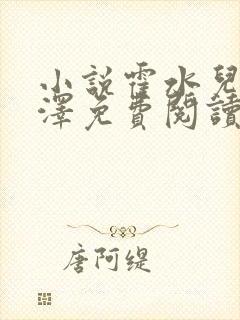 小説霍水兒
澤免費閱讀
唐阿缇